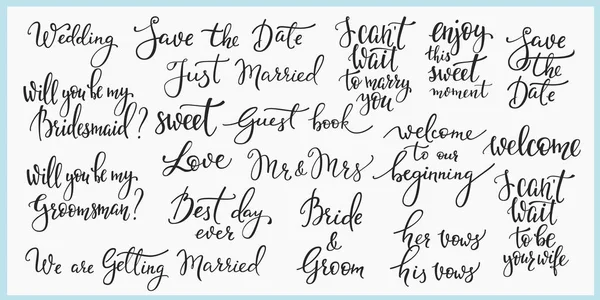 Wedding
Save the Date
I can't
wait
to marry
you
enjoy
this
sweet
moment
Save
the
Date
Just Married
Will you be my
Bridesmaid?
sweet
Guest book
welcome
to our
beginning
welcome
Love
Mr & Mrs
Will you be my
Groomsman?
Best day
ever
Bride
&
Groom
her vows
his vows
I can't
wait
to be
your wife
We are Getting Married